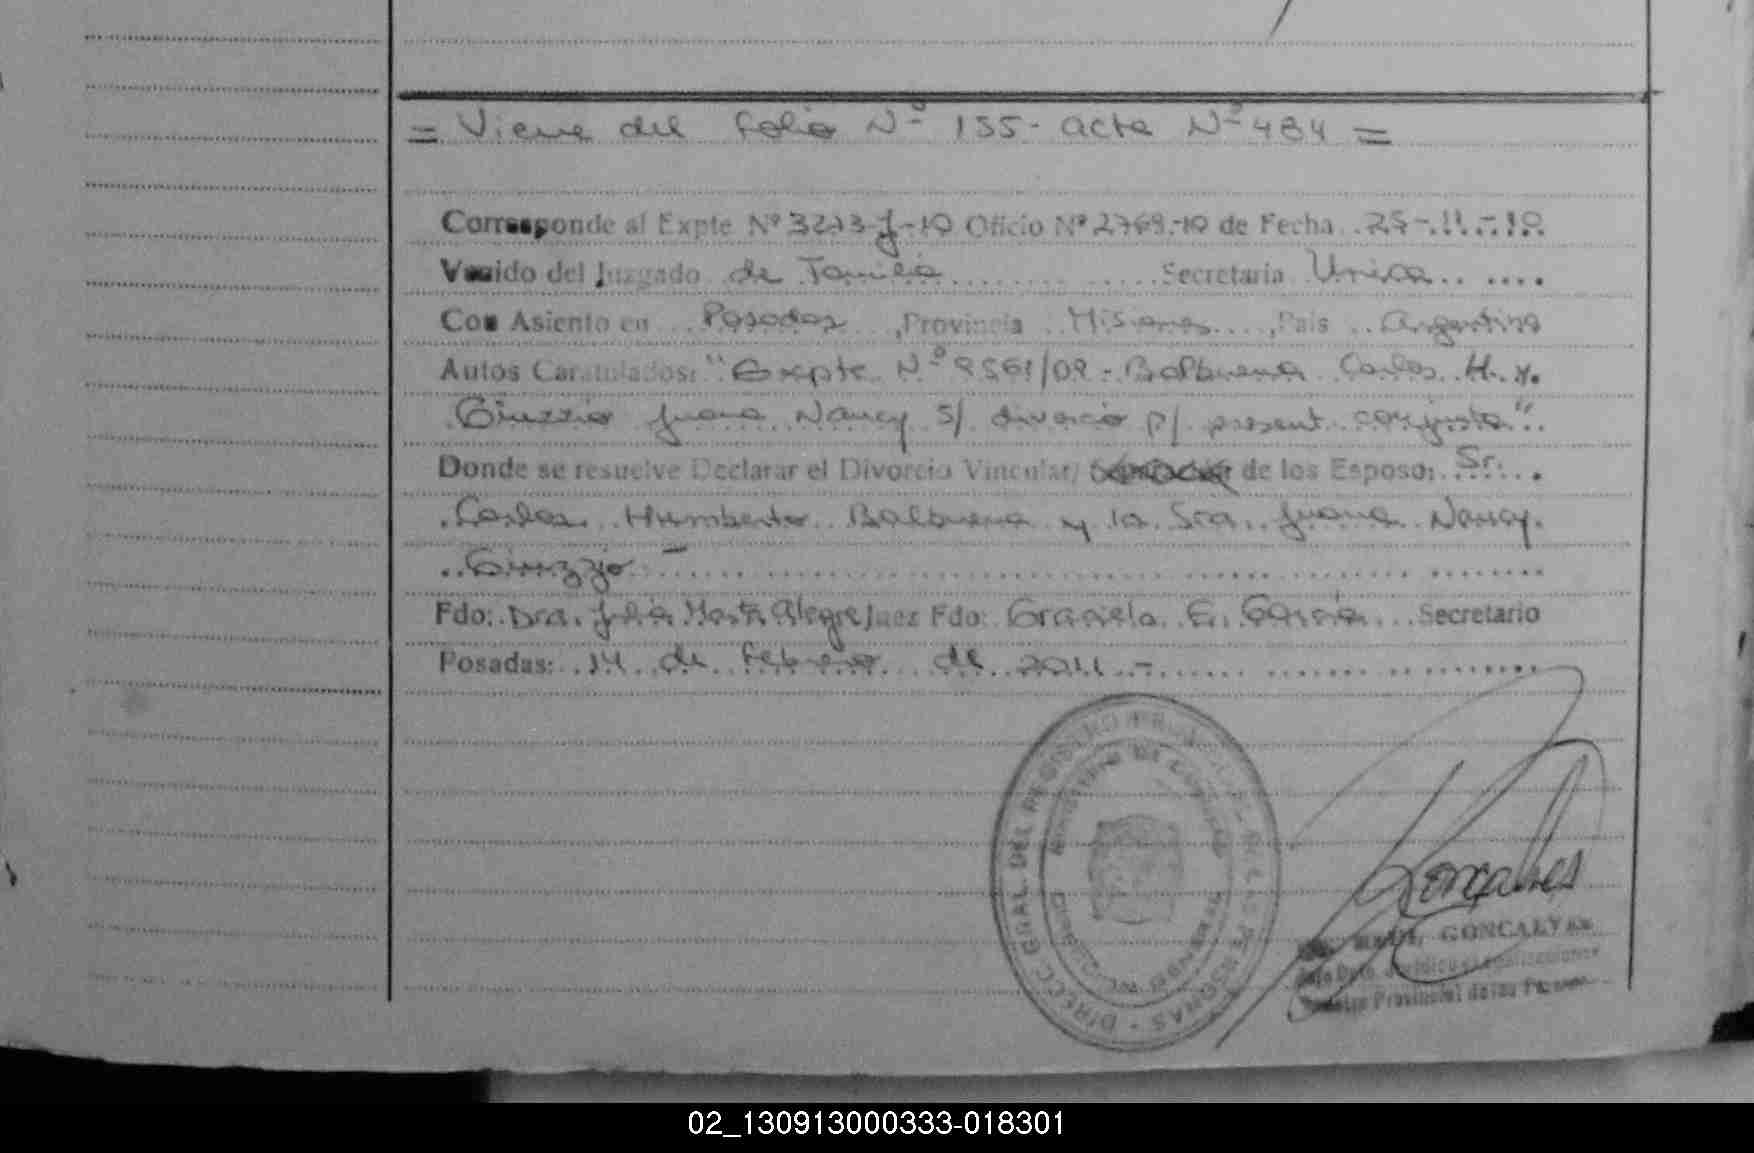 = Viene del folio Nº 155 - acta Nº 484 =
Corresponde al Expte Nº 3273-J-10 Oficio Nº 2769-10 de Fecha 25-11-10
Venido del Juzgado de Familia Secretaria Unica
Con Asiento en Posadas, Provincia Misiones, Pais Argentina
Autos Caratulados: "Expte Nº 9561/09 - Balbuena Carlos H. y
Juana Nancy s/ divorcio p/ present. conjunta"
Donde se resuelve Declarar el Divorcio Vincular/ de los Esposo: Sr.
Carlos Humberto Balbuena y la Sra. Juana Nancy
Fdo: Dra. Julia Marta Alegre Juez Fdo: Graciela E. García Secretario
Posadas: 14 de Febrero de 2011.-
DIRECC. GRAL. DEL REGISTRO PROVINCIAL DE LAS PERSONAS
MINISTERIO DE GOBIERNO
Goncalves
RAUL GONCALVES
Registro Provincial de las Personas
02_130913000333-018301